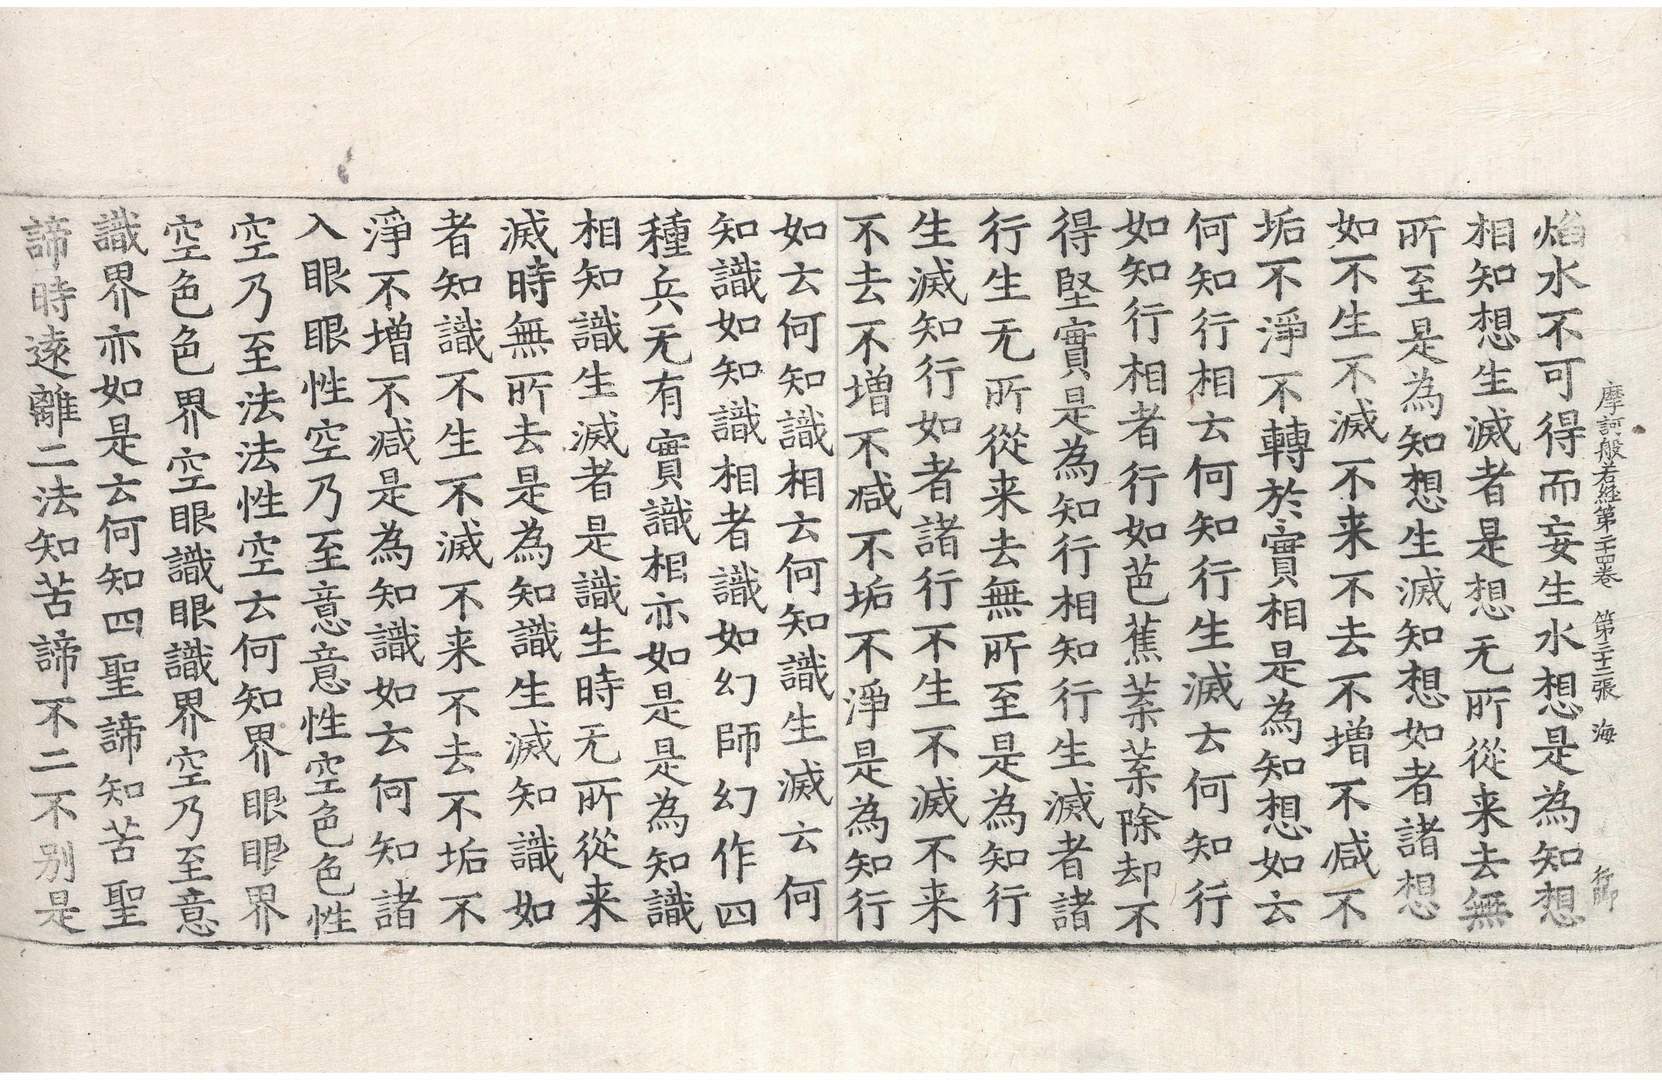 摩訶般若経第二十四卷 第二十二張 海 行
焰水不可得而妄生水想是為知想
相知想生滅者是想无所從来去無
所至是為知想生滅知想如者諸想
如不生不滅不来不去不增不减不
垢不淨不轉於實相是為知想如云
何知行相云何知行生滅云何知行
如知行相者行如芭蕉葉葉除却不
得堅實是為知行相知行生滅者諸
行生无所從来去無所至是為知行
生滅知行如者諸行不生不滅不来
不去不增不减不垢不淨是為知行
如云何知識相云何知識生滅云何
知識如知識相者識如幻師幻作四
種兵无有實識相亦如是是為知識
相知識生滅者是識生時无所從来
滅時無所去是為知識生滅知識如
者知識不生不滅不来不去不垢不
淨不增不减是為知識如云何知諸
入眼眼性空乃至意意性空色色性
空乃至法法性空云何知界眼眼界
空色色界空眼識眼識界空乃至意
識界亦如是云何知四聖諦知苦聖
諦時遠離二法知苦諦不二不别是